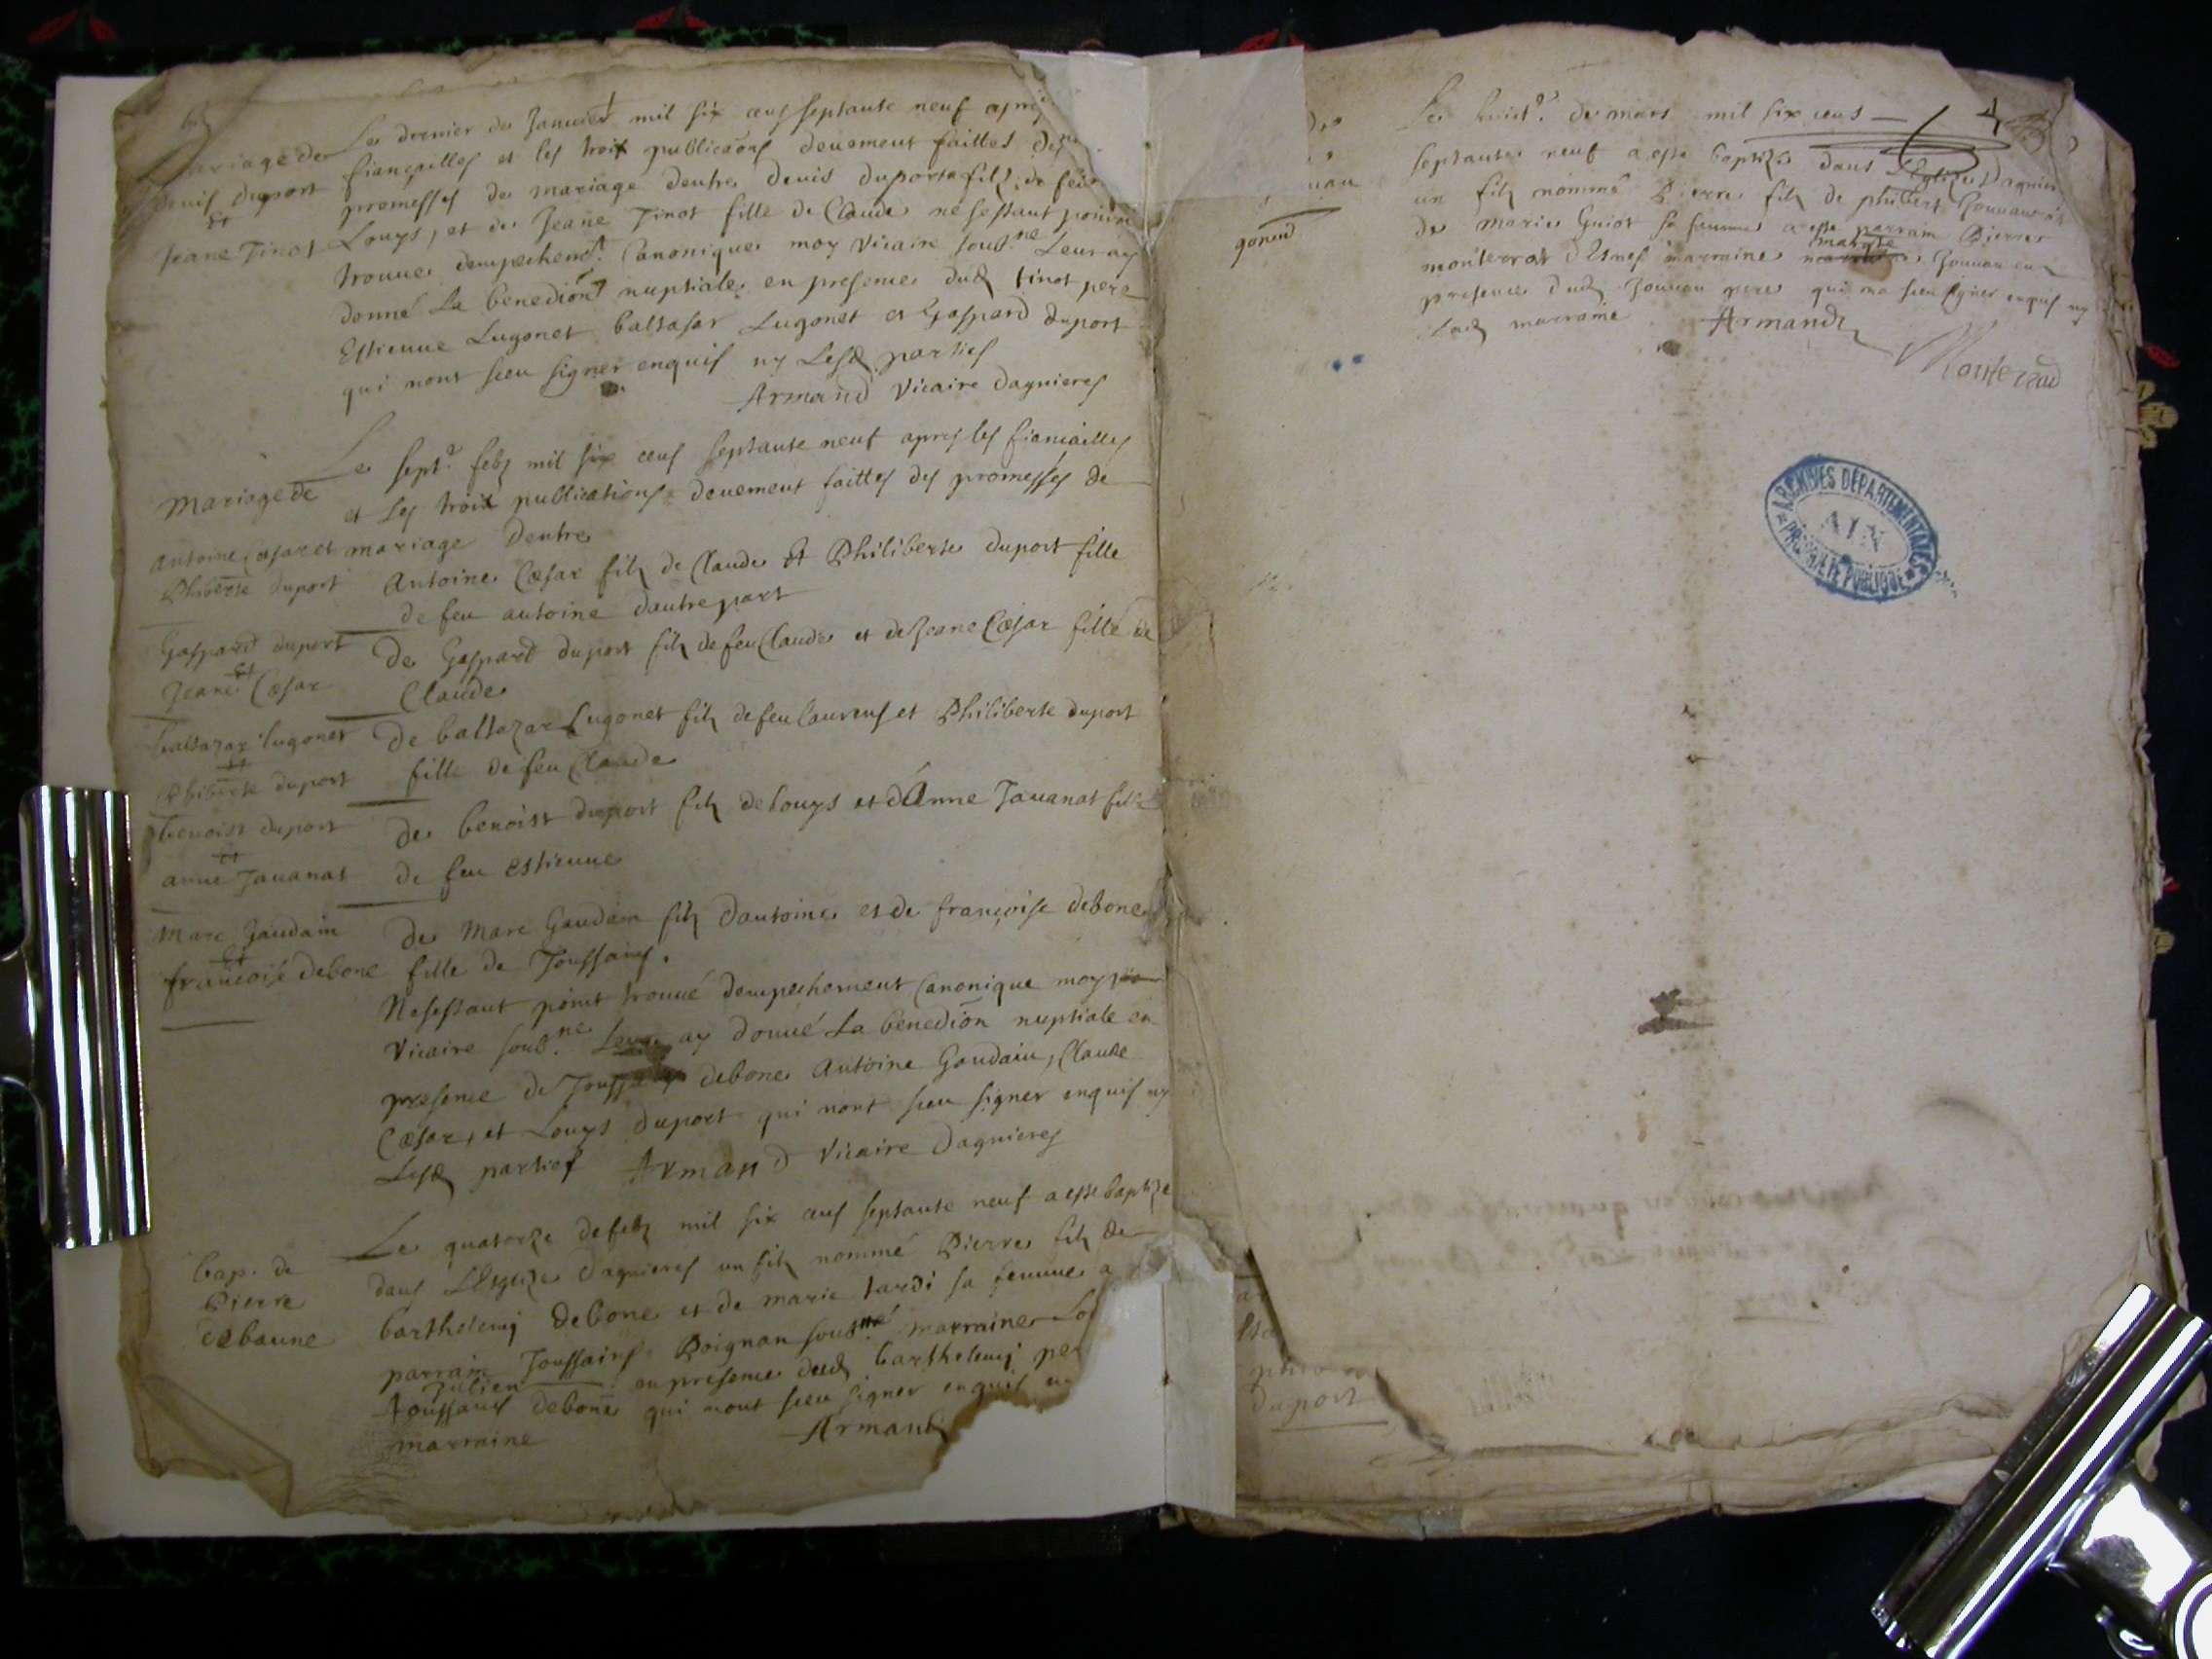 Mariage de
Denis Duport
Et
Jeane Tinot
Le dernier de Janvier mil six cens septante neuf apres
fiançailles et les troix publicaõns deuement faittes des
promesses de mariage dentre Denis Duport filz de feu
Louys, et de Jeane Tinot fille de Claude ne sestant point
trouué dempechemt. Canonique moy vicaire soubne. Leur ay
donné La benediõn nuptiale en presence dud tinot pere
Estienne Lugonet baltasar Lugonet et Gaspard duport
qui nont sceu signer enquis ny Lesd parties
Armand vicaire dagnieres
Mariage de
Antoine Cæsar et
Phiberte duport
Le sept.e feb mil six cens septante neuf apres les fiancailles
et Les troix publications deuement faittes des promesses de
mariage Dentre
Antoine Cæsar filz de Claude Et Philiberte duport fille
de feu antoine dautre part
Gaspard duport
Et
Jeane Cæsar
De Gaspard duport filz de feu Claude et de Jeane Cæsar fille de
Claude
Baltazar lugonet
Et
Phiberte duport
De baltazar Lugonet filz de feu laurens et Philiberte duport
fille de feu Claude
benoist duport
Et
anne Jauanat
De benoist duport filz de Louys et dAnne Jauanat fille
de feu Estienne
Marc Gaudain
Et
francoise debone
De Marc Gaudain filz dantoine et de françoise debone
fille de Toussains.
Ne sestant point trouué dempechement Canonique moy
vicaire soub.ne Leur ay donné La benediõn nuptiale en
presence de Toussains debone Antoine Gaudain, Claude
Cæsar, et Louys duport qui nont sceu signer enquis ny
Lesd parties Armand vicaire dagnieres
bap. de
Pierre
debaune
Le quatorze de feb mil six cens septante neuf a esté baptizé
dans LEsglize dagnieres un filz nommé Pierre filz de
barthelemj debone et de marie tardi sa femme a
parrain Toussains Poignan sousne marraine
Julien en presence dud barthelemj
toussains debone qui nont sceu signer enquis
marraine Armand
gonud
Le huict.e de mars mil six cens
septante neuf a esté baptizé dans LEglize Dagnieres
un filz nommé Pierre filz de phibert Jouuau et
de Marie Guiot sa femme a esté parrain Pierre
monterrat marraine margte Jouuau en
presence dud Jouuau pere qui na sceu signer enquis ny
lad marraine Armand
Monterrad
4
ARCHIVES DÉPARTEMENTALES
AIN
PROPRIÉTÉ PUBLIQUE
duport